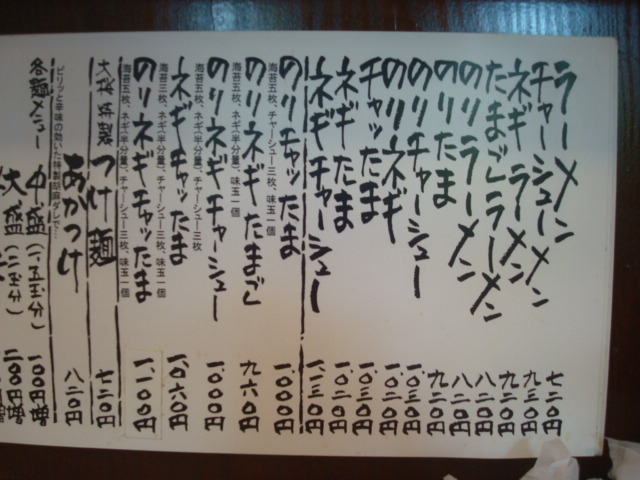 ラーメン 七二〇円
チャーシューメン 九三〇円
ネギラーメン 九二〇円
たまごラーメン 八二〇円
のりラーメン 八二〇円
のりたま 九二〇円
のりチャーシュー 一、〇三〇円
のりネギ 一、〇二〇円
チャッたま 一、〇三〇円
ネギたま 一、〇二〇円
ネギチャーシュー 一、一三〇円
のりチャッたま 一、〇〇〇円
海苔五枚、チャーシュー三枚、味玉一個
のりネギたまご 九六〇円
海苔五枚、ネギ(半分量)、味玉一個
のりネギチャーシュー 一、〇〇〇円
海苔五枚、ネギ(半分量)、チャーシュー三枚
ネギチャッたま 一、〇六〇円
のりネギチャッたま 一、一〇〇円
海苔三枚、ネギ(半分量)、チャーシュー三枚、味玉一個
海苔五枚、ネギ(半分量)、チャーシュー三枚、味玉一個
つけ麺 七二〇円
あかつけ 八二〇円
ピリッと辛味の効いた特製胡麻ダレで…
各麺メニュー 中盛(一・五玉分) 一〇〇円増
大盛(二玉分)